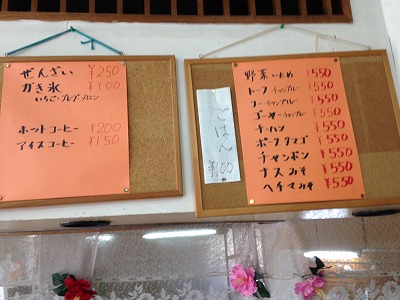 ぜんざい ¥250
かき氷 ¥100
いちご・ブルー メロン
ホットコーヒー ¥200
アイスコーヒー ¥150
ごはん ¥100
野菜いため ¥550
トーフチャンプルー ¥550
フーチャンプルー ¥550
ゴーヤーチャンプルー ¥550
チーハン ¥550
ポークタマゴ ¥550
チャンポン ¥550
ナスみそ ¥550
ヘチマみそ ¥550